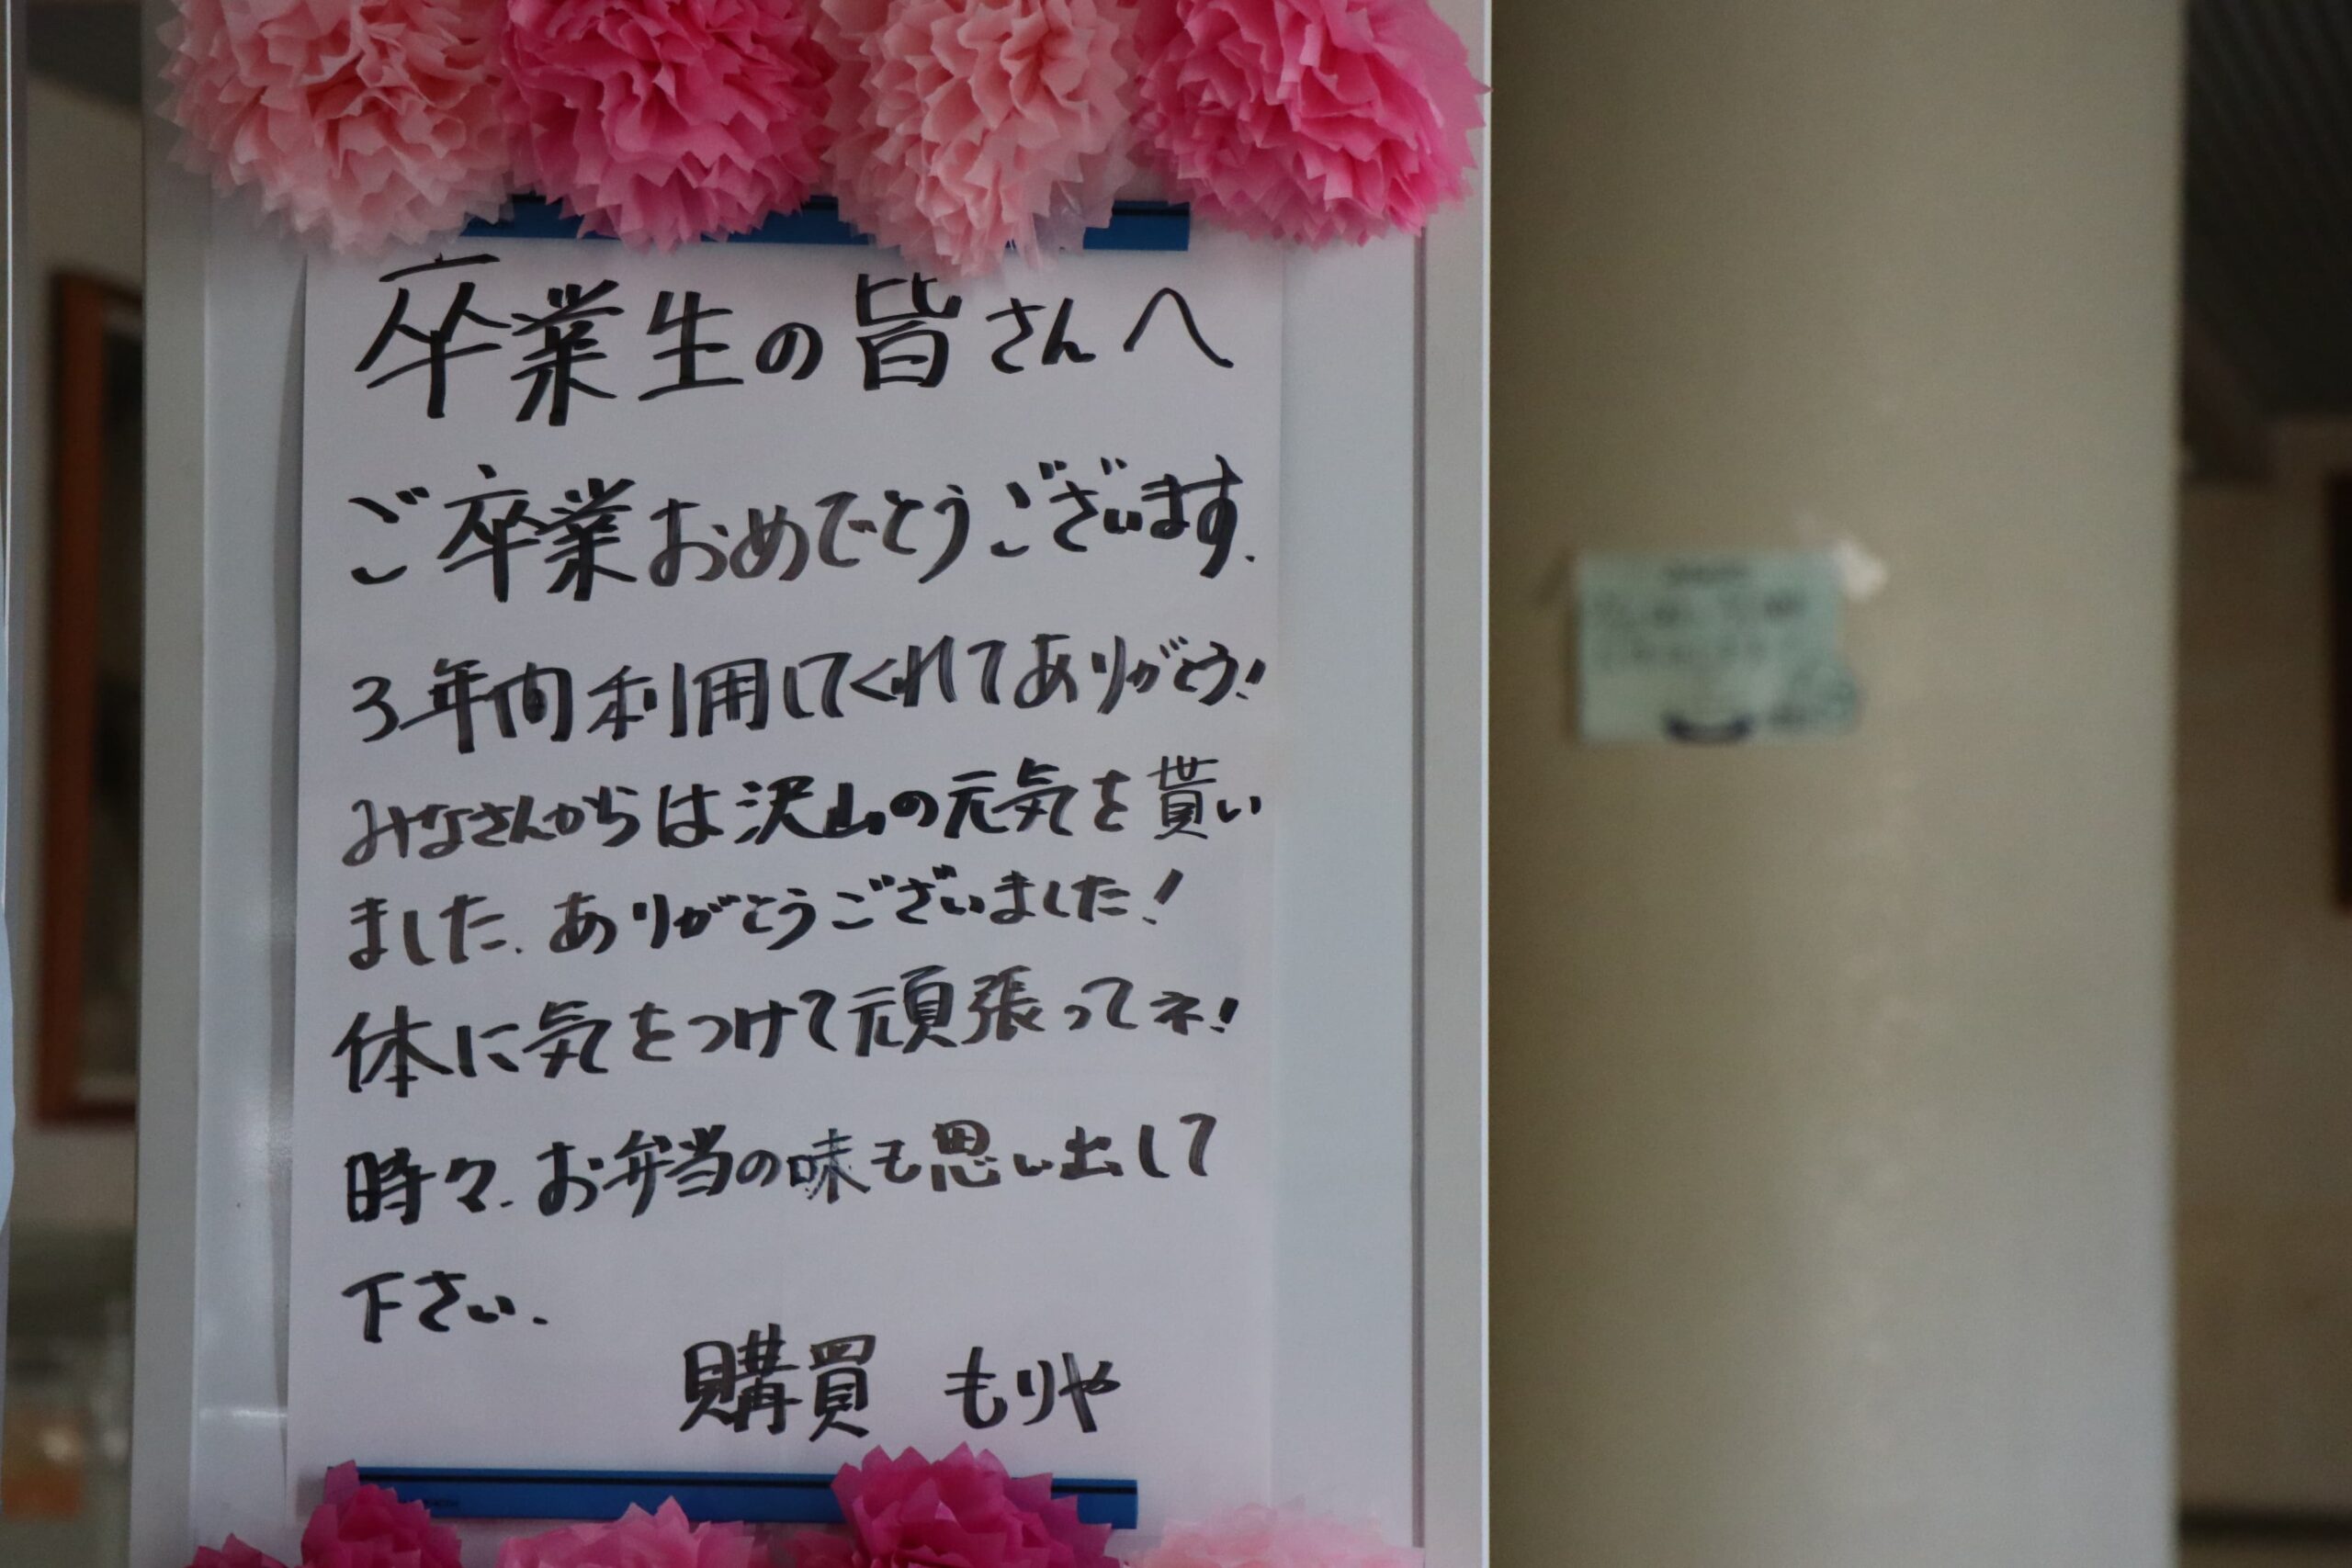 卒業生の皆さんへ
ご卒業おめでとうございます.
3年間利用してくれてありがとう!
みなさんからは沢山の元気を貰い
ました.ありがとうございました!
体に気をつけて頑張ってネ!
時々.お弁当の味も思い出して
下さい.
購買 もりや